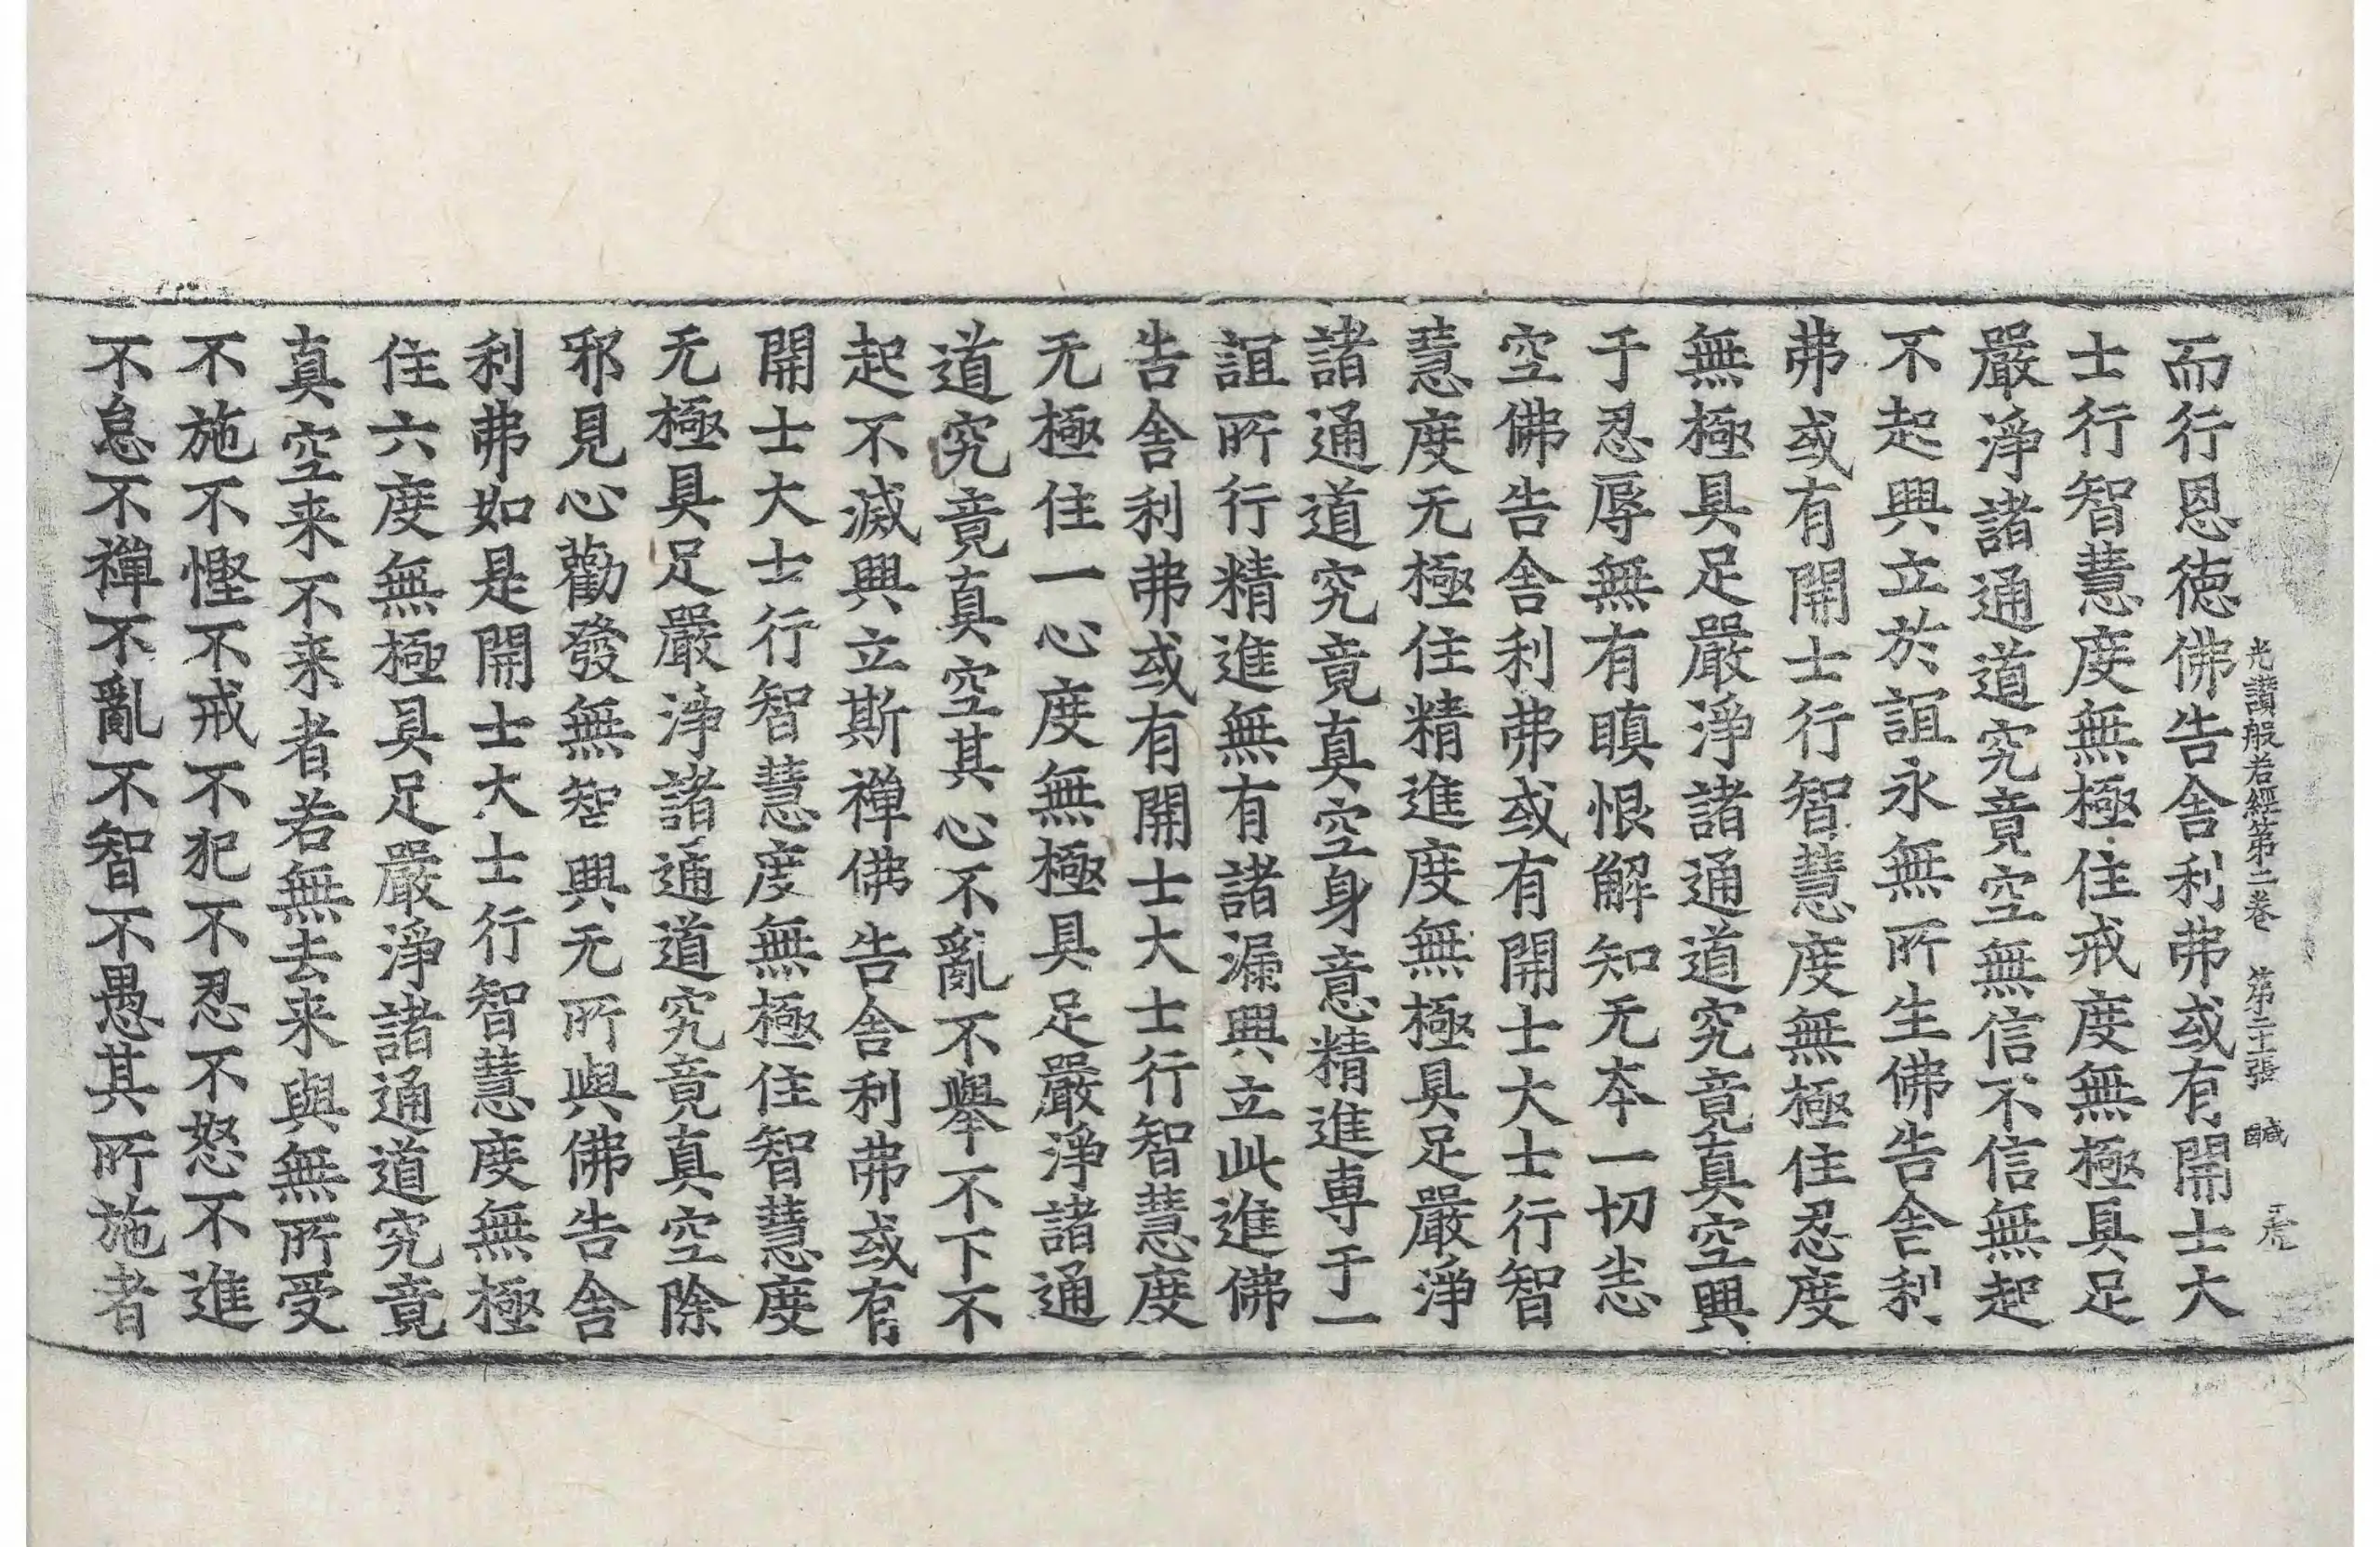 光讚般若經第二卷　第二十張　醎　虎
而行恩德佛告舍利弗或有開士大
士行智慧度無極住戒度無極具足
嚴淨諸通道究竟空無信不信無起
不起興立於誼永無所生佛告舍利
弗或有開士行智慧度無極住忍度
無極具足嚴淨諸通道究竟真空興
于忍辱無有瞋恨解知无本一切恙
空佛告舍利弗或有開士大士行智
慧度无極住精進度無極具足嚴淨
諸通道究竟真空身意精進専于一
誼所行精進無有諸漏興立此進佛
告舍利弗或有開士大士行智慧度
无極住一心度無極具足嚴淨諸通
道究竟真空其心不亂不舉不下不
起不滅興立斯禪佛告舍利弗或有
開士大士行智慧度無極住智慧度
无極具足嚴淨諸通道究竟真空除
邪見心勸發無智興无所與佛告舍
利弗如是開士大士行智慧度無極
住六度無極具足嚴淨諸通道究竟
真空来不来者若無去来與無所受
不施不慳不戒不犯不忍不怒不進
不怠不禪不亂不智不愚其所施者